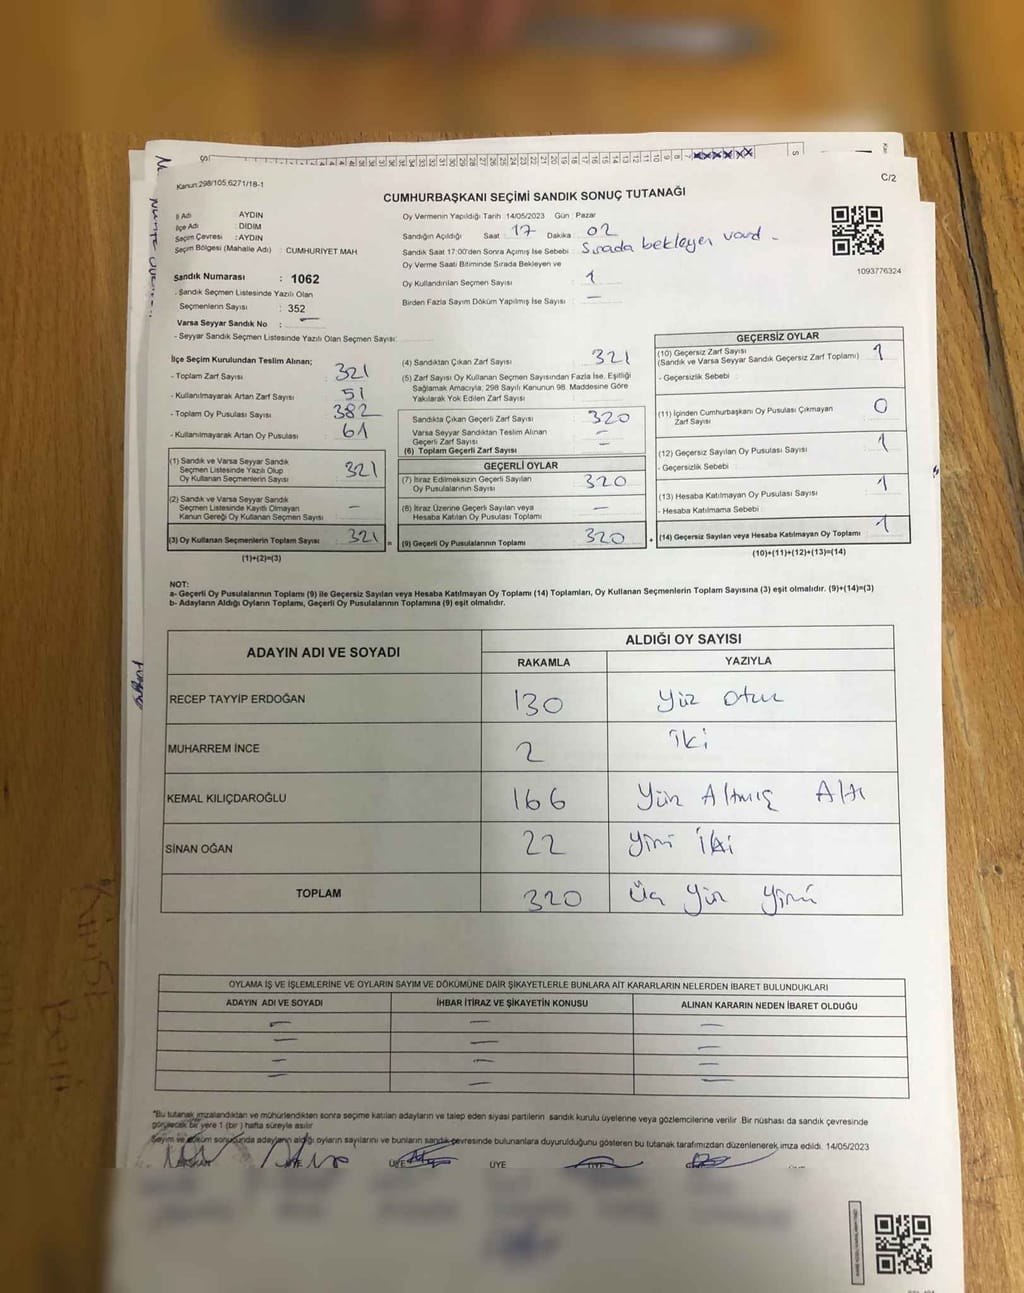 Kanun:298/105;6271/18-1
C/2
CUMHURBAŞKANI SEÇİMİ SANDIK SONUÇ TUTANAĞI
İl Adı : AYDIN
İlçe Adı : DİDİM
Seçim Çevresi : AYDIN
Seçim Bölgesi (Mahalle Adı) : CUMHURİYET MAH
Sandık Numarası : 1062
- Sandık Seçmen Listesinde Yazılı Olan
Seçmenlerin Sayısı : 352
Varsa Seyyar Sandık No : —
- Seyyar Sandık Seçmen Listesinde Yazılı Olan Seçmen Sayısı:
Oy Vermenin Yapıldığı Tarih : 14/05/2023 Gün : Pazar
Sandığın Açıldığı Saat 17 Dakika : 02
Sandık Saat 17:00'den Sonra Açımış İse Sebebi : Sırada bekleyen vardı.
Oy Verme Saati Bitiminde Sırada Bekleyen ve
Oy Kullandırılan Seçmen Sayısı : 1
Birden Fazla Sayım Döküm Yapılmış İse Sayısı : —
1093776324
İlçe Seçim Kurulundan Teslim Alınan;
- Toplam Zarf Sayısı : 321
- Kullanılmayarak Artan Zarf Sayısı : 51
- Toplam Oy Pusulası Sayısı : 382
- Kullanılmayarak Artan Oy Pusulası : 61
(1) Sandık ve Varsa Seyyar Sandık
Seçmen Listesinde Yazılı Olup
Oy Kullanan Seçmenlerin Sayısı : 321
(2) Sandık ve Varsa Seyyar Sandık
Seçmen Listesinde Kayıtlı Olmayan
Kanun Gereği Oy Kullanan Seçmen Sayısı : —
(3) Oy Kullanan Seçmenlerin Toplam Sayısı : 321 =
(1)+(2)=(3)
(4) Sandıktan Çıkan Zarf Sayısı : 321
(5) Zarf Sayısı Oy Kullanan Seçmen Sayısından Fazla İse, Eşitliği
Sağlamak Amacıyla, 298 Sayılı Kanunun 98. Maddesine Göre
Yakılarak Yok Edilen Zarf Sayısı :
Sandıkta Çıkan Geçerli Zarf Sayısı : 320
Varsa Seyyar Sandıktan Teslim Alınan
Geçerli Zarf Sayısı : —
(6) Toplam Geçerli Zarf Sayısı : —
GEÇERLİ OYLAR
(7) İtiraz Edilmeksizin Geçerli Sayılan
Oy Pusulalarının Sayısı : 320
(8) İtiraz Üzerine Geçerli Sayılan veya
Hesaba Katılan Oy Pusulası Toplamı : —
(9) Geçerli Oy Pusulalarının Toplamı : 320 +
GEÇERSİZ OYLAR
(10) Geçersiz Zarf Sayısı
(Sandık ve Varsa Seyyar Sandık Geçersiz Zarf Toplamı) : 1
- Geçersizlik Sebebi :
(11) İçinden Cumhurbaşkanı Oy Pusulası Çıkmayan
Zarf Sayısı : 0
(12) Geçersiz Sayılan Oy Pusulası Sayısı : 1
- Geçersizlik Sebebi :
(13) Hesaba Katılmayan Oy Pusulası Sayısı : 1
- Hesaba Katılmama Sebebi :
(14) Geçersiz Sayılan veya Hesaba Katılmayan Oy Toplamı : 1
(10)+(11)+(12)+(13)=(14)
NOT:
a- Geçerli Oy Pusulalarının Toplamı (9) ile Geçersiz Sayılan veya Hesaba Katılmayan Oy Toplamı (14) Toplamları, Oy Kullanan Seçmenlerin Toplam Sayısına (3) eşit olmalıdır. (9)+(14)=(3)
b- Adayların Aldığı Oyların Toplamı, Geçerli Oy Pusulalarının Toplamına (9) eşit olmalıdır.
ADAYIN ADI VE SOYADI
ALDIĞI OY SAYISI
RAKAMLA YAZIYLA
RECEP TAYYİP ERDOĞAN 130 Yüz Otuz
MUHARREM İNCE 2 İki
KEMAL KILIÇDAROĞLU 166 Yüz Altmış Altı
SİNAN OĞAN 22 Yirmi İki
TOPLAM 320 Üç Yüz Yirmi
OYLAMA İŞ VE İŞLEMLERİNE VE OYLARIN SAYIM VE DÖKÜMÜNE DAİR ŞİKAYETLERLE BUNLARA AİT KARARLARIN NELERDEN İBARET BULUNDUKLARI
ADAYIN ADI VE SOYADI İHBAR İTİRAZ VE ŞİKAYETİN KONUSU ALINAN KARARIN NEDEN İBARET OLDUĞU
— — —
— — —
— — —
— — —
*Bu tutanak imzalandıktan ve mühürlendikten sonra seçime katılan adayların ve talep eden siyasi partilerin sandık kurulu üyelerine veya gözlemcilerine verilir. Bir nüshası da sandık çevresinde
görülecek bir yere 1 (bir) hafta süreyle asılır.
Sayım ve döküm sonucunda adayların aldığı oyların sayılarını ve bunların sandık çevresinde bulunanlara duyurulduğunu gösteren bu tutanak tarafımızdan düzenlenerek imza edildi. 14/05/2023
BAŞKAN ÜYE ÜYE ÜYE ÜYE